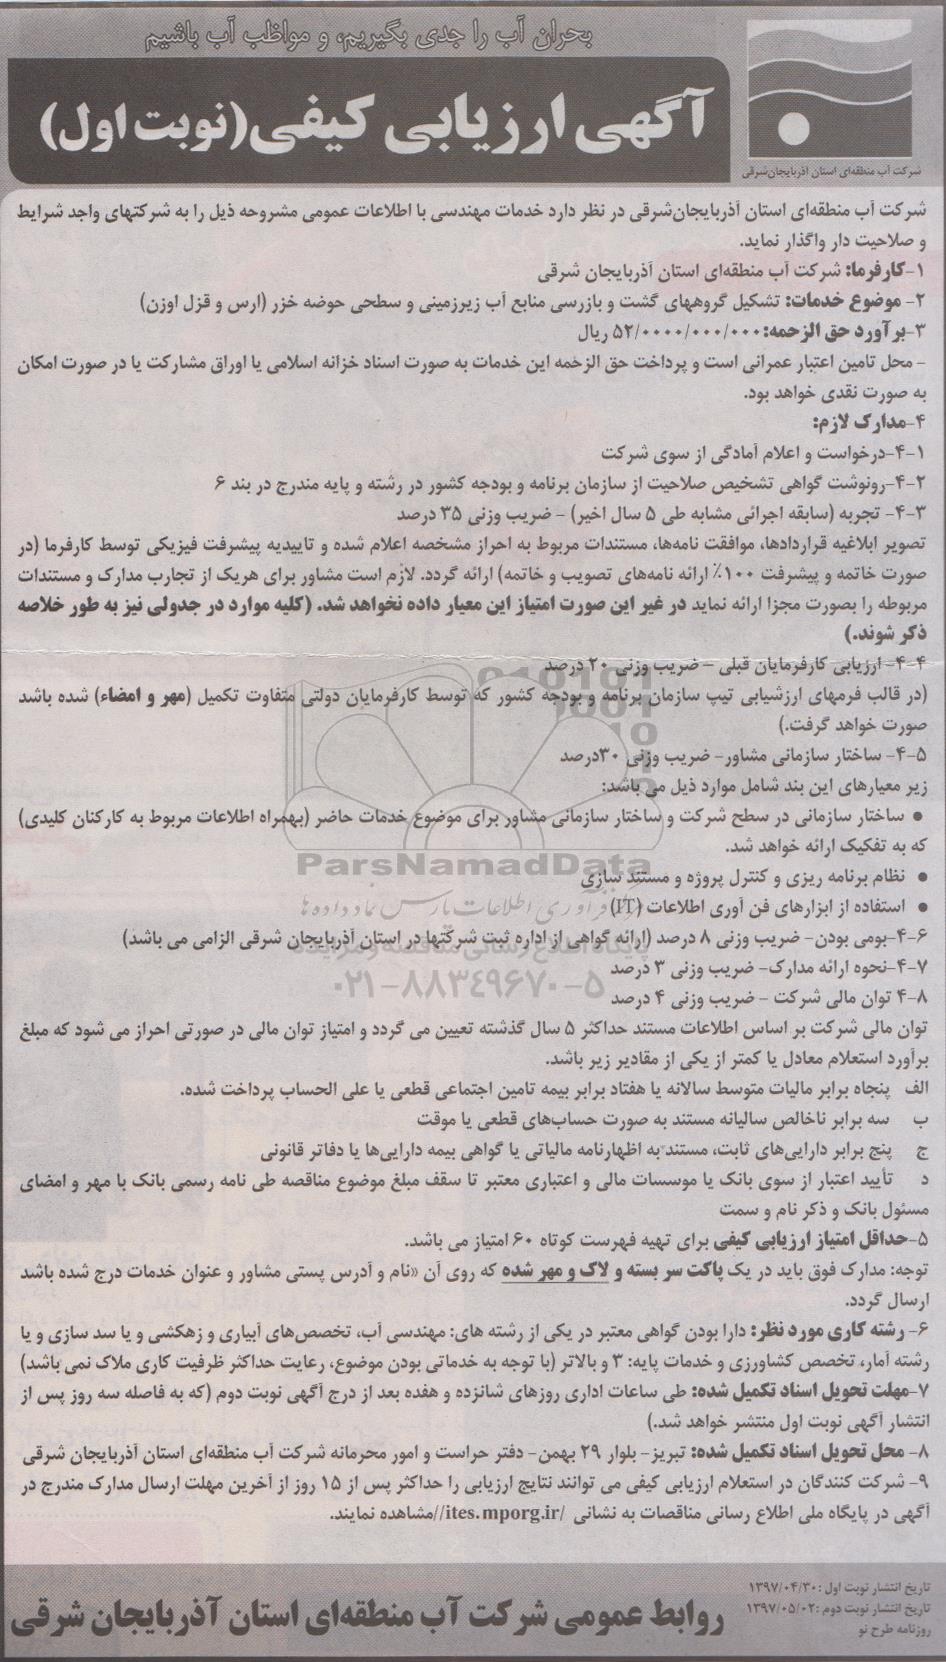 بحران آب را جدی بگیریم، و مواظب آب باشیم
آگهی ارزیابی کیفی(نوبت اول)
شرکت آب منطقه‌ای استان آذربایجان‌شرقی
شرکت آب منطقه‌ای استان آذربایجان‌شرقی در نظر دارد خدمات مهندسی با اطلاعات عمومی مشروحه ذیل را به شرکتهای واجد شرایط
و صلاحیت دار واگذار نماید.
۱-کارفرما: شرکت آب منطقه‌ای استان آذربایجان شرقی
۲- موضوع خدمات: تشکیل گروههای گشت و بازرسی منابع آب زیرزمینی و سطحی حوضه خزر (ارس و قزل اوزن)
۳-برآورد حق الزحمه: ۵۲/۰۰۰۰/۰۰۰/۰۰۰ ریال
- محل تامین اعتبار عمرانی است و پرداخت حق الزحمه این خدمات به صورت اسناد خزانه اسلامی یا اوراق مشارکت یا در صورت امکان
به صورت نقدی خواهد بود.
۴-مدارک لازم:
۴-۱-درخواست و اعلام آمادگی از سوی شرکت
۴-۲-رونوشت گواهی تشخیص صلاحیت از سازمان برنامه و بودجه کشور در رشته و پایه مندرج در بند ۶
۴-۳- تجربه (سابقه اجرائی مشابه طی ۵ سال اخیر) - ضریب وزنی ۳۵ درصد
تصویر ابلاغیه قراردادها، موافقت نامه‌ها، مستندات مربوط به احراز مشخصه اعلام شده و تاییدیه پیشرفت فیزیکی توسط کارفرما (در
صورت خاتمه و پیشرفت ۱۰۰٪ ارائه نامه‌های تصویب و خاتمه) ارائه گردد. لازم است مشاور برای هریک از تجارب مدارک و مستندات
مربوطه را بصورت مجزا ارائه نماید در غیر این صورت امتیاز این معیار داده نخواهد شد. (کلیه موارد در جدولی نیز به طور خلاصه
ذکر شوند.)
۴-۴- ارزیابی کارفرمایان قبلی - ضریب وزنی ۲۰ درصد
(در قالب فرمهای ارزشیابی تیپ سازمان برنامه و بودجه کشور که توسط کارفرمایان دولتی متفاوت تکمیل (مهر و امضاء) شده باشد
صورت خواهد گرفت.)
۴-۵- ساختار سازمانی مشاور- ضریب وزنی ۳۰درصد
زیر معیارهای این بند شامل موارد ذیل می باشد:
• ساختار سازمانی در سطح شرکت و ساختار سازمانی مشاور برای موضوع خدمات حاضر (بهمراه اطلاعات مربوط به کارکنان کلیدی)
که به تفکیک ارائه خواهد شد.
ParsNamadData
• نظام برنامه ریزی و کنترل پروژه و مستند سازی
• استفاده از ابزارهای فن آوری اطلاعات (IT)
فرآوری اطلاعات پارس نماد داده‌ها
۴-۶-بومی بودن- ضریب وزنی ۸ درصد (ارائه گواهی از اداره ثبت شرکتها در استان آذربایجان شرقی الزامی می باشد)
پایگاه اطلاع رسانی مناقصه و مزایده
۴-۷-نحوه ارائه مدارک- ضریب وزنی ۳ درصد
۰۲۱-۸۸۳۴۹۶۷۰-۵
۴-۸ توان مالی شرکت - ضریب وزنی ۴ درصد
توان مالی شرکت بر اساس اطلاعات مستند حداکثر ۵ سال گذشته تعیین می گردد و امتیاز توان مالی در صورتی احراز می شود که مبلغ
برآورد استعلام معادل یا کمتر از یکی از مقادیر زیر باشد.
الف پنجاه برابر مالیات متوسط سالانه یا هفتاد برابر بیمه تامین اجتماعی قطعی یا علی الحساب پرداخت شده.
ب سه برابر ناخالص سالیانه مستند به صورت حساب‌های قطعی یا موقت
ج پنج برابر دارایی‌های ثابت، مستند به اظهارنامه مالیاتی یا گواهی بیمه دارایی‌ها یا دفاتر قانونی
د تأیید اعتبار از سوی بانک یا موسسات مالی و اعتباری معتبر تا سقف مبلغ موضوع مناقصه طی نامه رسمی بانک با مهر و امضای
مسئول بانک و ذکر نام و سمت
۵-حداقل امتیاز ارزیابی کیفی برای تهیه فهرست کوتاه ۶۰ امتیاز می باشد.
توجه: مدارک فوق باید در یک پاکت سر بسته و لاک و مهر شده که روی آن «نام و آدرس پستی مشاور و عنوان خدمات درج شده باشد
ارسال گردد.
۶- رشته کاری مورد نظر: دارا بودن گواهی معتبر در یکی از رشته های: مهندسی آب، تخصص‌های آبیاری و زهکشی و یا سد سازی و یا
رشته آمار، تخصص کشاورزی و خدمات پایه: ۳ و بالاتر (با توجه به خدماتی بودن موضوع، رعایت حداکثر ظرفیت کاری ملاک نمی باشد)
۷-مهلت تحویل اسناد تکمیل شده: طی ساعات اداری روزهای شانزده و هفده بعد از درج آگهی نوبت دوم (که به فاصله سه روز پس از
انتشار آگهی نوبت اول منتشر خواهد شد.)
۸- محل تحویل اسناد تکمیل شده: تبریز- بلوار ۲۹ بهمن- دفتر حراست و امور محرمانه شرکت آب منطقه‌ای استان آذربایجان شرقی
۹- شرکت کنندگان در استعلام ارزیابی کیفی می توانند نتایج ارزیابی را حداکثر پس از ۱۵ روز از آخرین مهلت ارسال مدارک مندرج در
آگهی در پایگاه ملی اطلاع رسانی مناقصات به نشانی /ites.mporg.ir//مشاهده نمایند.
تاریخ انتشار نوبت اول :۱۳۹۷/۰۴/۳۰
تاریخ انتشار نوبت دوم :۱۳۹۷/۰۵/۰۲
روزنامه طرح نو
روابط عمومی شرکت آب منطقه‌ای استان آذربایجان شرقی